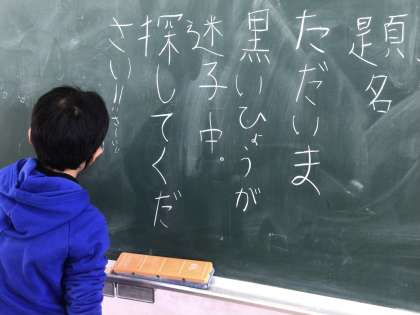 題名
ただいま
黒いひょうが
迷子中。
探してくだ
さい!!